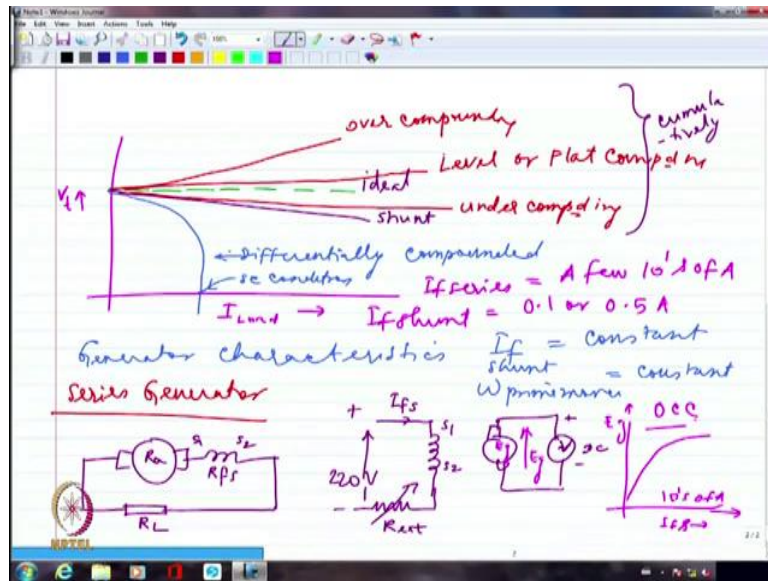 Note1 - Windows Journal
File Edit View Insert Actions Tools Help
100%
over compounding
cumula
-tively
Level or Flat compdin
ideal
Vt ↑
under compding
shunt
differentially compounded
sc condition
If series = A few 10's of A
ILoad → If shunt = 0.1 or 0.5 A
Generator characteristics If shunt = constant
ω primemover = constant
Series Generator
+ Ifs
S1
S2
220V
-
Rext
Ra
S1 S2
Rfs
RL
Eg
Eg
V
+
DC
-
Eg
OCC
10's of A
Ifs →
NPTEL
2/2